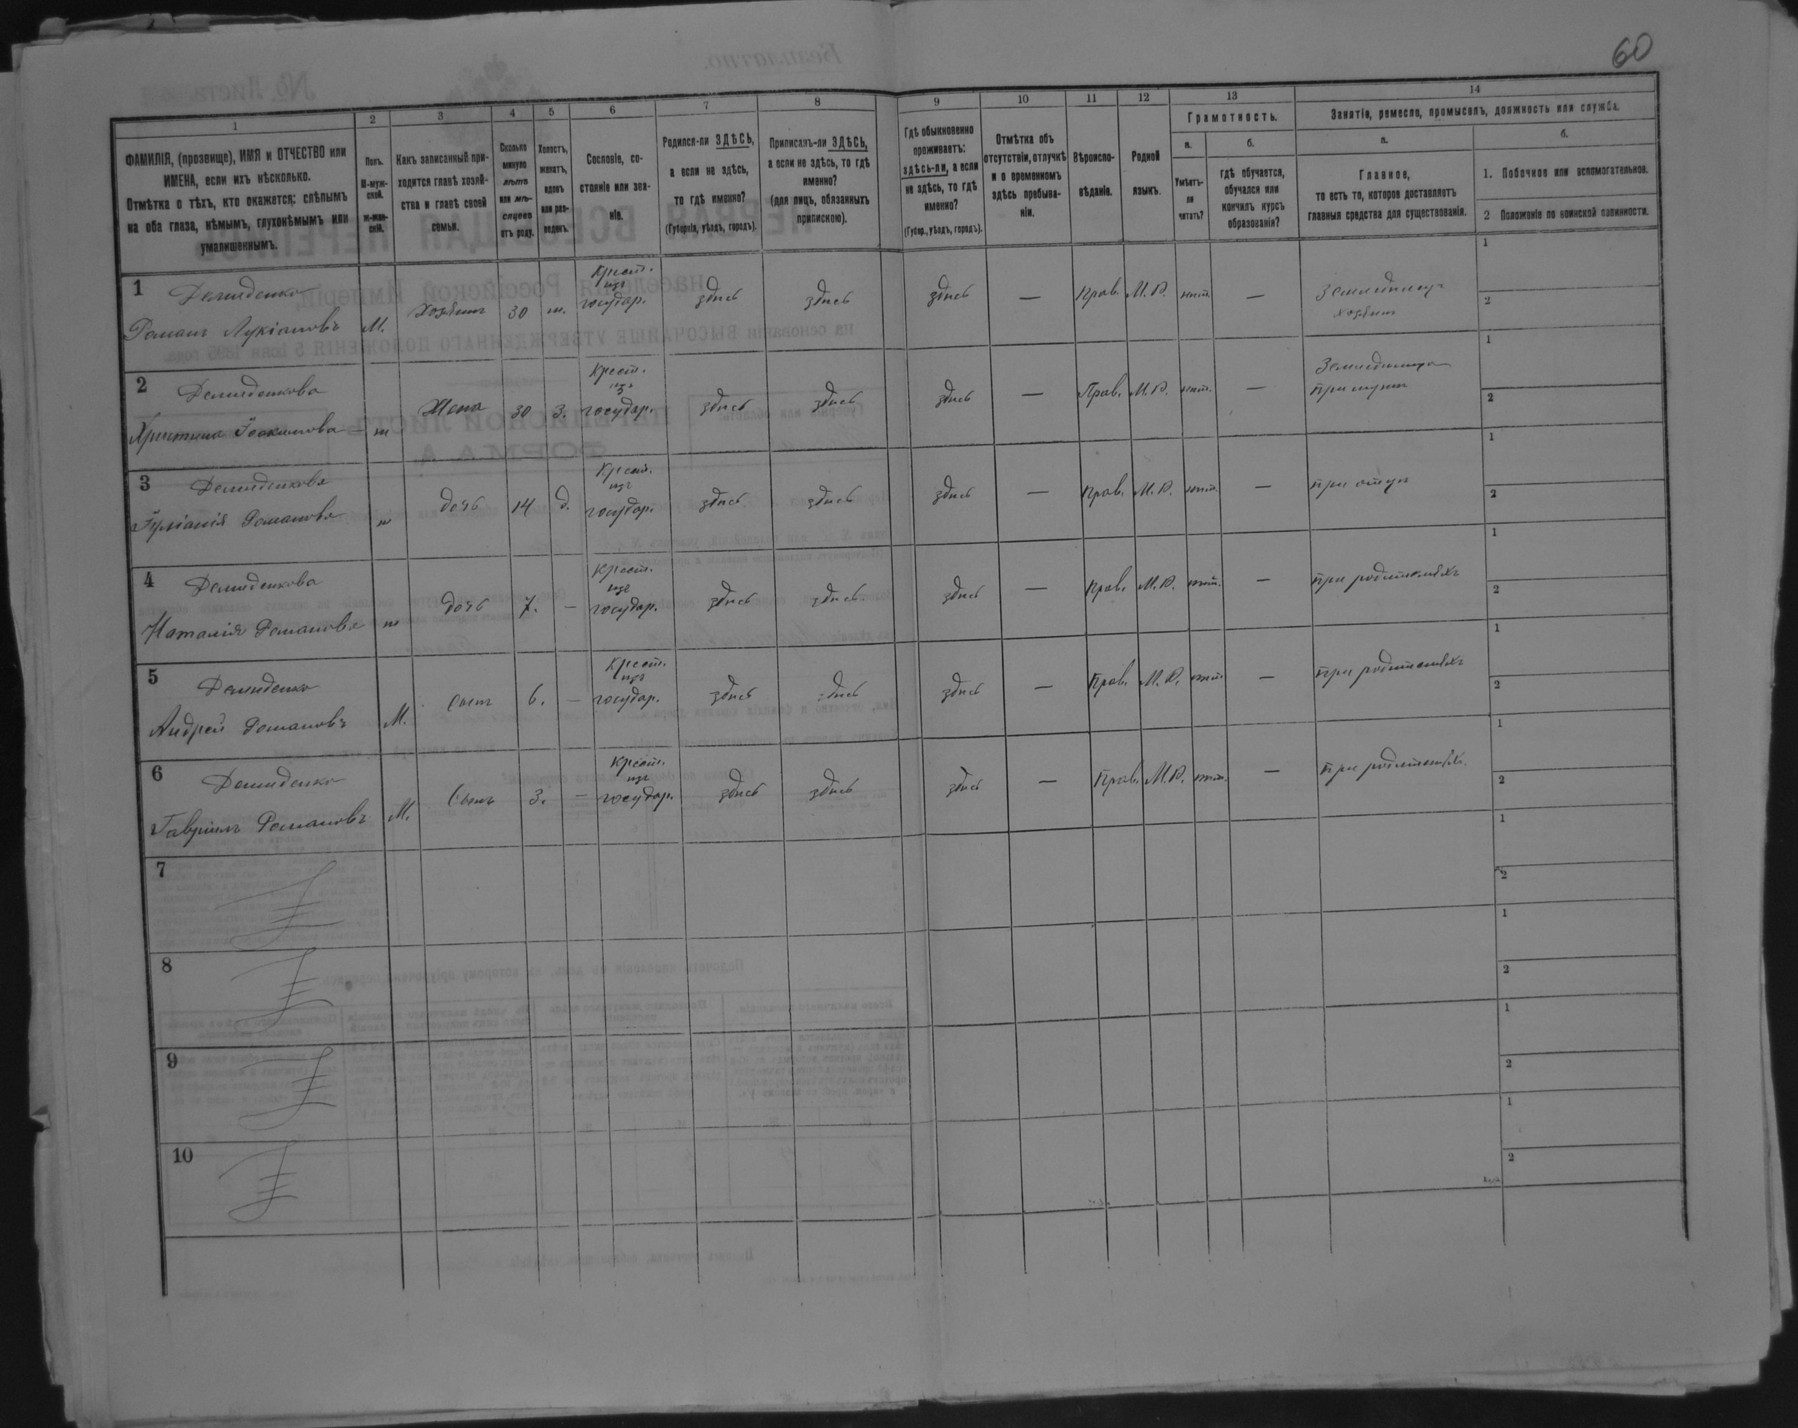 60
1
2
3
4
5
6
7
8
9
10
11
12
13
14
ФАМИЛІЯ, (прозвище), ИМЯ и ОТЧЕСТВО или
ИМЕНА, если ихъ нѣсколько.
Отмѣтка о тѣхъ, кто окажется: слѣпымъ
на оба глаза, нѣмымъ, глухонѣмымъ или
умалишеннымъ.
Полъ.
М-муж-
ской.
ж-жен-
скій.
Какъ записанный при-
ходится главѣ хозяй-
ства и главѣ своей
семьи.
Сколько
минуло
лѣтъ
или мѣ-
сяцевъ
отъ роду.
Холостъ,
женатъ,
вдовъ
или раз-
веденъ.
Сословіе, со-
стояніе или зва-
ніе.
Родился-ли ЗДѢСЬ,
а если не здѣсь,
то гдѣ именно?
(Губернія, уѣздъ, городъ).
Приписанъ-ли ЗДѢСЬ,
а если не здѣсь, то гдѣ
именно?
(для лицъ, обязанныхъ
припискою).
Гдѣ обыкновенно
проживаетъ:
здѣсь-ли, а если
не здѣсь, то гдѣ
именно?
(Губер., уѣздъ, городъ).
Отмѣтка объ
отсутствіи, отлучкѣ
и о временномъ
здѣсь пребыва-
ніи.
Вѣроиспо-
вѣданіе.
Родной
языкъ.
Грамотность.
а.
Умѣетъ-
ли
читать?
б.
гдѣ обучается,
обучался или
кончилъ курсъ
образованія?
Занятіе, ремесло, промыселъ, должность или служба.
а.
Главное,
то есть то, которое доставляетъ
главныя средства для существованія.
б.
1. Побочное или вспомогательное.
2 Положеніе по воинской повинности.
1 Демиденко
Романъ Лукіановъ М. Хозяинъ 30 ж. Крест. изъ государ. здѣсь здѣсь здѣсь — Прав. М.Р. нѣт. — Земледѣлецъ хозяинъ 1 2
2 Демиденкова
Христина Іоакимова ж Жена 30 З. Крест. изъ государ. здѣсь здѣсь здѣсь — Прав. М.Р. нѣт. — при мужѣ 1 2
3 Демиденкова
Романова ж дочь 14 д. Крест. изъ государ. здѣсь здѣсь здѣсь — Прав. М.Р. нѣт. — при отцѣ 1 2
4 Демиденкова
Наталія Романова ж дочь 7. — Крест. изъ государ. здѣсь здѣсь здѣсь — Прав. М.Р. нѣт. — при родителяхъ 1 2
5 Демиденко
Андрей Романовъ М. Сынъ 6. — Крест. изъ государ. здѣсь здѣсь здѣсь — Прав. М.Р. нѣт. — при родителяхъ 1 2
6 Демиденко
Гавріилъ Романовъ М. Сынъ 3. — Крест. изъ государ. здѣсь здѣсь здѣсь — Прав. М.Р. нѣт. — при родителях. 1 2
7 1 2
8 1 2
9 1 2
10 1 2